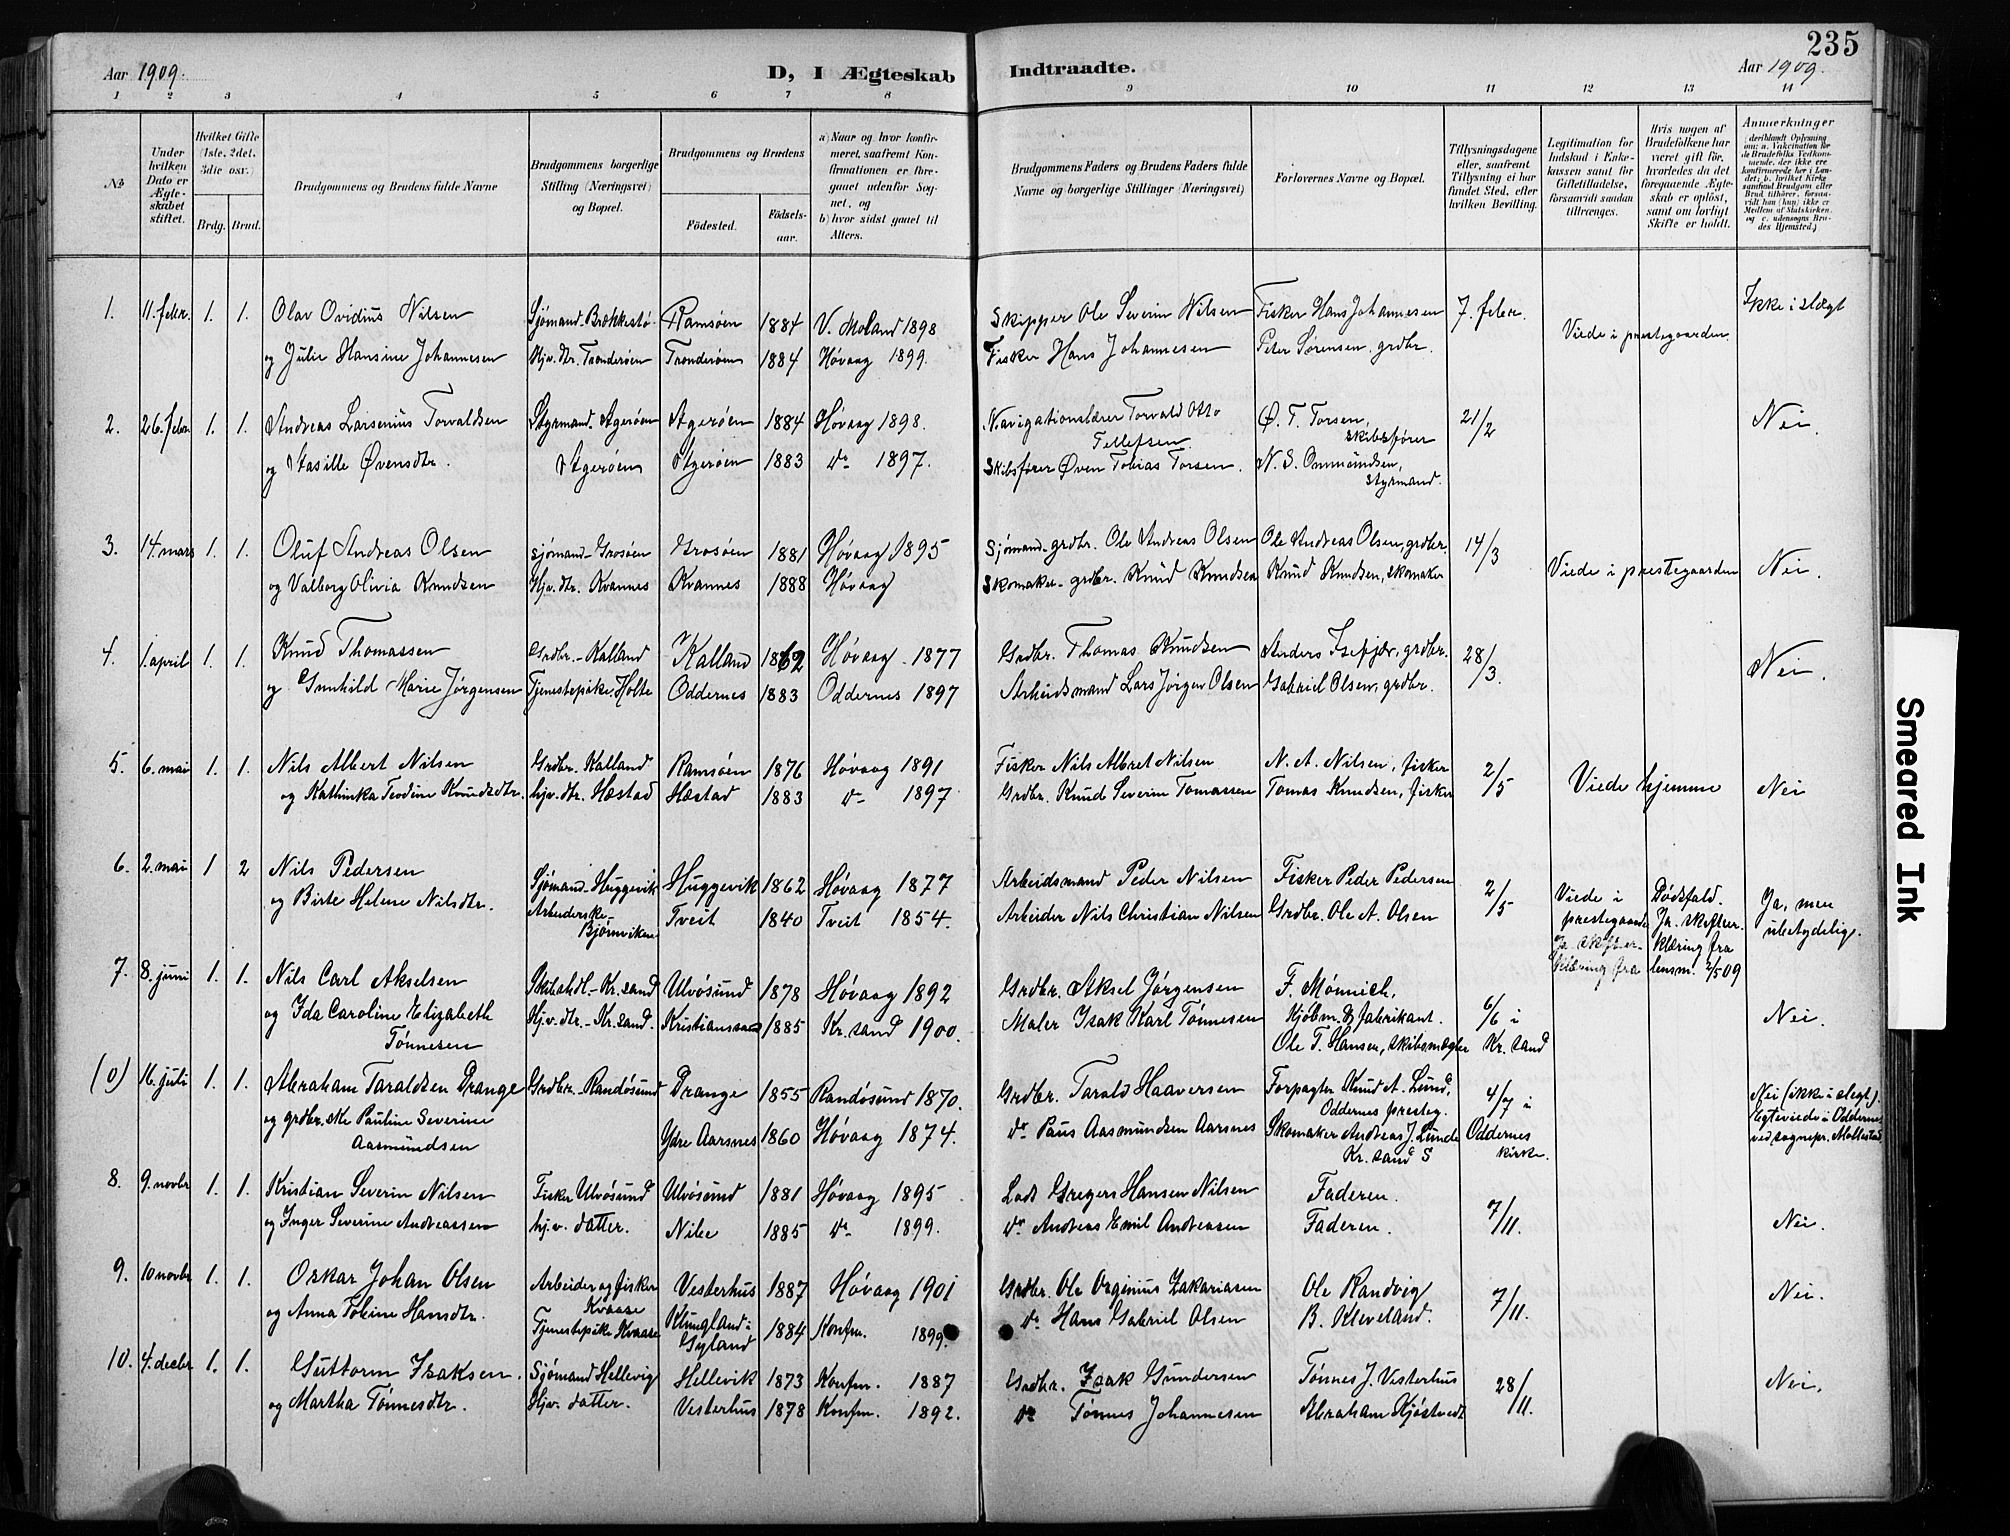 235
Aar 1909.
D, I Ægteskab
Indtraadte.
Aar 1909.
1 2 3 4 5 6 7 8 9 10 11 12 13 14
№
Under hvilken Dato er Ægteskabet stiftet.
Hvilket Gifte (1ste, 2det, 3die osv.)
Brdg. Brud.
Brudgommens og Brudens fulde Navne
Brudgommens borgerlige Stilling (Næringsvei) og Bopæl.
Brudgommens og Brudens
Fødested.
Fødselsaar.
a) Naar og hvor konfirmeret, saafremt Konfirmationen er foregaaet udenfor Sognet, og
b) hvor sidst gaaet til Alters.
Brudgommens Faders og Brudens Faders fulde Navne og borgerlige Stillinger (Næringsvei)
Forlovernes Navne og Bopæl.
Tillysningsdagene eller, saafremt Tillysning ei har fundet Sted, efter hvilken Bevilling.
Legitimation for Indskud i Enkekassen samt for Giftetilladelse, forsaavidt saadan tiltrænges.
Hvis nogen af Brudefolkene har været gift før, hvorledes da det foregaaende Ægteskab er opløst, samt om lovligt Skifte er holdt.
Anmærkninger (deriblandt Oplysning om: a. Vakcination for de Brudefolks Vedkommende, der ikke ere konfirmerede her i Landet; b. hvilket Kirkesamfund Brudgom eller Brud tilhører, forsaavidt han (hun) ikke er Medlem af Statskirken, og c. udensogns Brudes Hjemsted.)
1. 11. febr. 1. 1. Olav Ovidius Nilsen Sjømand. Brekkestø Ramsøen 1884 V. Moland 1898 Skipper Ole Severin Nilsen Fisker Hans Johannesen 7. febr. Viede i prestegaarden. Ikke i slægt
og Julie Hansine Johannesen Hjv. dtr. Trønderøen Trønderøen 1884 Høvaag 1899. Fisker Hans Johannesen Peter Sørensen, grdbr.
2. 26. febr. 1. 1. Andreas Larsenius Torvaldsen Styrmand. Agerøen Agerøen 1884 Høvaag 1898. Navigationslærer Torvald Otto Tellefsen Ø. T. Torsen, skibsfører 21/2 Nei.
og Aasille Øvensdtr. Agerøen Agerøen 1883 do 1897. Skibsfører Øven Tobias Torsen. N. S. Ommundsen, styrmand.
3. 14. mars 1. 1. Oluf Andreas Olsen sjømand - Grosøen Grosøen 1881 Høvaag 1895 Sjømand - grdbr. Ole Andreas Olsen Ole Andreas Olsen, grdbr. 14/3 Viede i prestegaarden Nei.
og Valborg Olivia Knudsen Hjv. dtr. Kvannes Kvannes 1888 Høvaag Skomaker - grdbr. Knud Knudsen Knud Knudsen, skomaker
4. 1. april 1. 1. Knud Thomassen Grdbr. - Kalland Kalland 1862 Høvaag - 1877 Grdbr. Thomas Knudsen Anders Isefjær, grdbr. 28/3. Nei.
og Gunhild Marie Jørgensen Tjenestepike Holte Oddernes 1883 Oddernes 1897 Arbeidsmand Lars Jørgen Olsen Gabriel Olsen, grdbr.
5. 6. mai 1. 1. Nils Albert Nilsen Grdbr. Kalland Ramsøen 1876 Høvaag 1891 Fisker Nils Albret Nilsen N. A. Nilsen, fisker 2/5 Viede hjemme Nei
og Kathinka Teodine Knudsdtr. hjv. dtr. Hæstad Hæstad 1883 do 1897 Grdbr. Knud Severin Tomassen Tomas Knudsen, fisker
6. 2. mai 1 2 Nils Pedersen Sjømand - Huggevik Huggevik 1862 Høvaag 1877 Arbeidsmand Peder Nilsen Fisker Peder Pedersen 2/5 Viede i prestegaarden Dødsfald. Ja, men ubetydelig.
og Birte Helene Nilsdtr. Arbeiderske - Bjørnviken Tveit 1840 Tveit 1854. Arbeider Nils Christian Nilsen Grdbr. Ole A. Olsen Ja. skifteerklæring fra lensm. 2/5 09
7. 8. juni 1. 1. Nils Carl Akselsen Skibshdl. - Kr.sand Ulvøsund 1878 Høvaag 1892 Grdbr. Aksel Jørgensen F. Mønnich, Kjøbm. & fabrikant. 6/6 i Kr. sand Nei.
og Ida Caroline Elizabeth Tønnesen Hjv. dtr. - Kr. sand. Kristianssand 1885 Kr. sand 1900. Maler Isak Karl Tønnesen Ole T. Hansen, skibsmægler
(0) 16. juli 1. 1. Abraham Taraldsen Drange Grdbr. Randøsund Drange 1855 Randøsund 1870. Grdbr. Tarald Haaversen Forpagter Knud A. Lund, Oddernes presteg. 4/7 i Oddernes kirke. Nei (ikke i slegt). Egteviede i Oddernes ved sognepr. Mollestad
og grdbr. ske Pauline Severine Aasmundsen Ydre Aarsnes 1860 Høvaag 1874. do Paus Aasmundsen Aarsnes Skomaker Andreas J. Lunde Kr. sand S
8. 9. novbr 1. 1. Kristian Severin Nilsen Fisker Ulvøsund Ulvøsund 1881 Høvaag 1895 Lods Gregers Hansen Nilsen Faderen. 7/11. Nei.
og Inger Severine Andreassen hjv. datter. Nibe 1885 do 1899. do Andreas Emil Andreasen Faderen.
9. 10 novbr 1. 1. Oskar Johan Olsen Arbeider og fisker Kvaase Vesterhus 1887 Høvaag 1901 Grdbr. Ole Orginius Zakariasen Ole Randvig 7/11. Nei.
og Anna Tobine Hansdtr. Tjenestepike Kvaase Klungland i Gyland 1884 Konfm. 1899. do Hans Gabriel Olsen B. Kleveland.
10. 4. decbr 1. 1. Guttorm Isaksen. Sjømand Hellevig Hellevik 1873 Konfm. 1887 Grdbr. Isak Gundersen Tønnes J. Vesterhus 28/11. Nei.
og Martha Tønnesdtr. Hjv. datter. Vesterhus 1878 Konfm. 1892. do Tønnes Johannesen Abraham Kjøstvedt
Smeared Ink